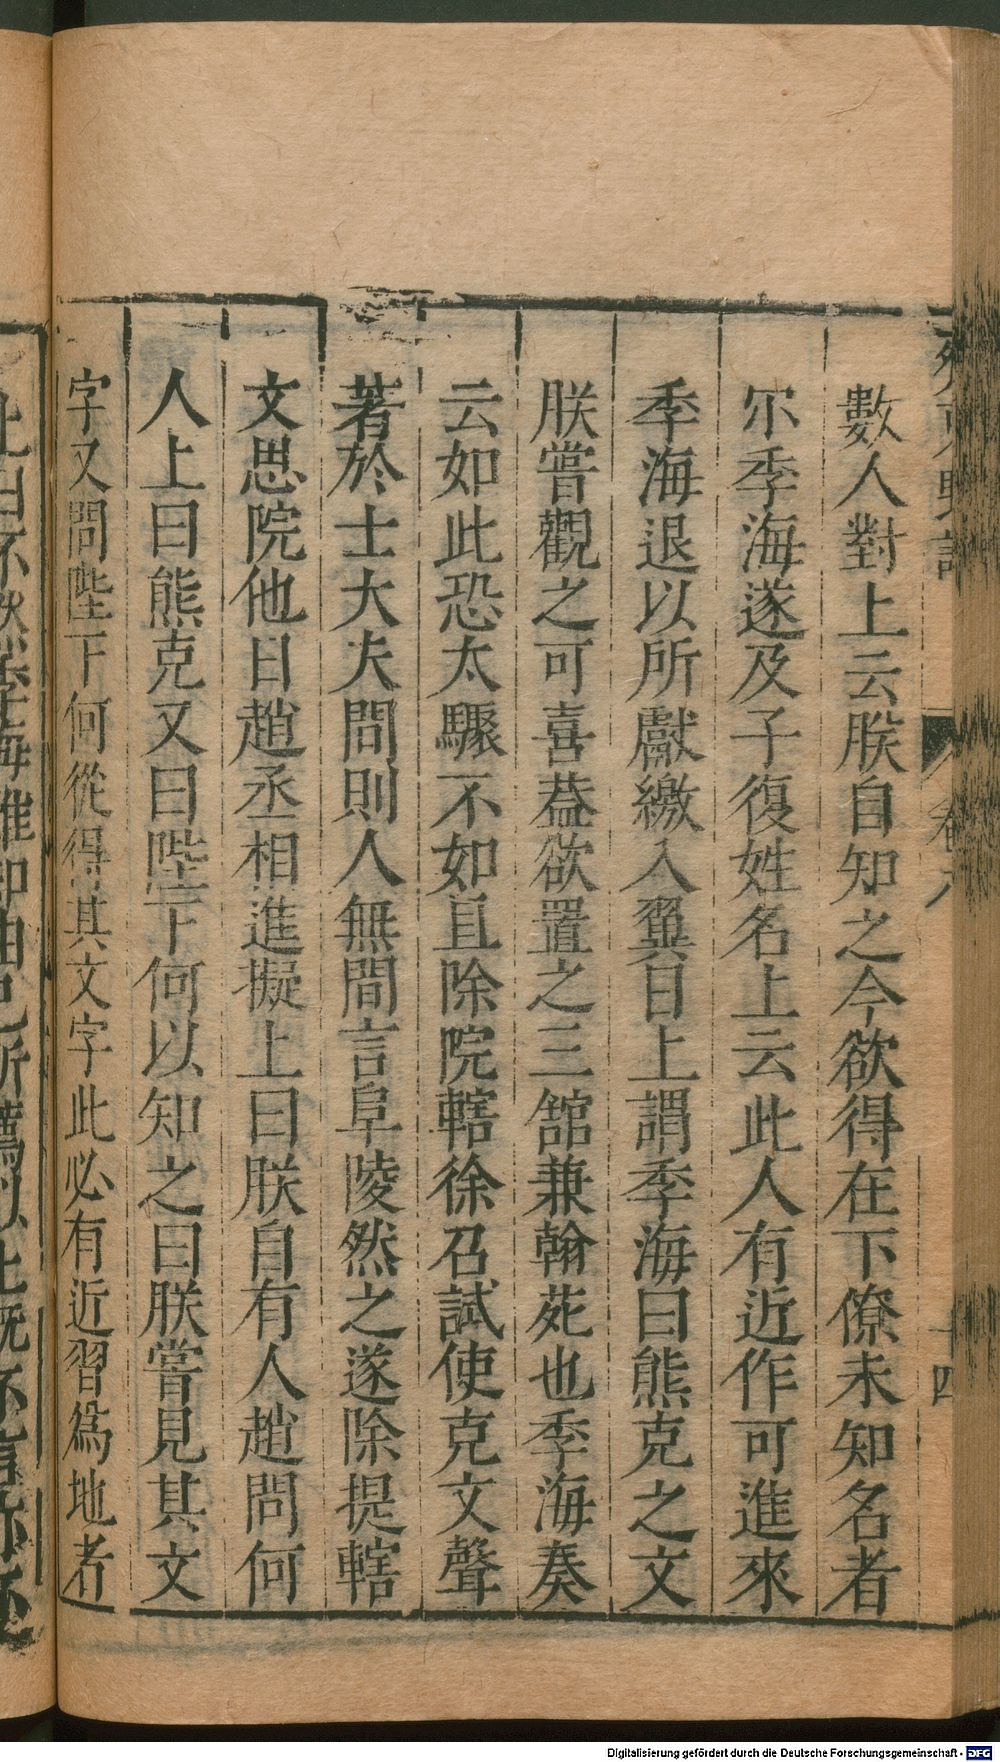 數人對上云朕自知之今欲得在下僚未知名者
尔季海遂及子復姓名上云此人有近作可進來
季海退以所獻繳入翼日上謂季海曰熊克之文
朕嘗觀之可喜葢欲置之三舘兼翰苑也季海奏
云如此恐太驟不如且除院轄徐召試使克文聲
著於士大夫問則人無間言阜陵然之遂除提轄
文思院他日趙丞相進擬上曰朕自有人趙問何
人上曰熊克又曰陛下何以知之曰朕嘗見其文
字又問陛下何從得其文字此必有近習爲地者
Digitalisierung gefördert durch die Deutsche Forschungsgemeinschaft - DFG